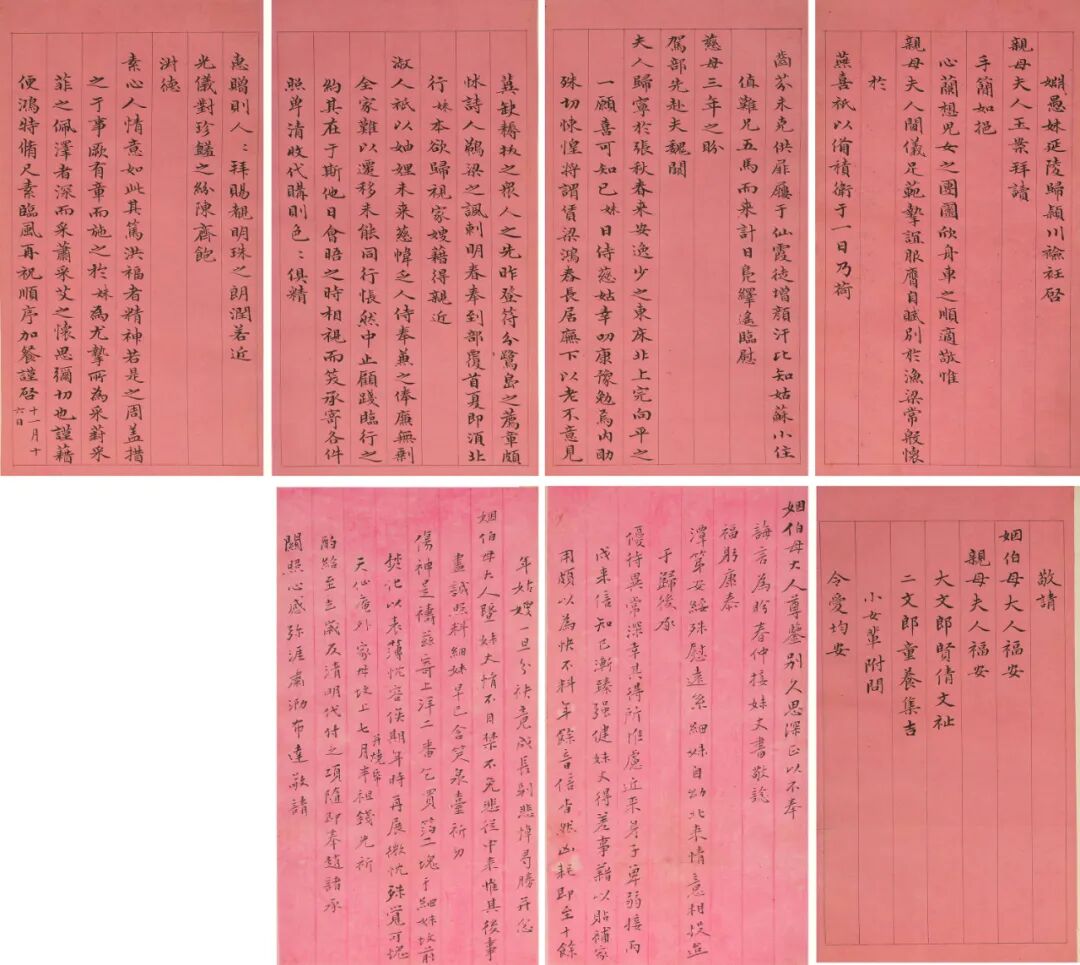 姻愚妹延陵歸潁川襝衽啓
親母夫人玉景拜讀
手簡如挹
心蘭想兒女之團圞欣舟車之順適敬惟
親母夫人閫儀足範摯誼服膺自賦別於漁梁常般懷
於
燕喜祇以脩積衛于一日乃荷
齒芬未克供扉屨于仙霞徒增顏汗比知姑蘇小住
值難兄五馬而來計日鳧繹遙臨慰
慈母三年之盼
駕部先赴夫魏闕
夫人歸寧於張秋春來安逸少之東床北上完向平之
一願喜可知已妹日侍慈姑幸叨康豫勉爲內助
殊切悚惶將謂賃梁鴻舂長居廡下以老不意見
冀缺耨拔之眾人之先昨登符分鷺島之薦章頗
怵詩人鵜梁之諷刺明春奉到部覆首夏即湏北
行妹本欲歸視家嫂藉得親近
淑人祇以妯娌未來慈幃乏人侍奉兼之俸廉無剩
全家難以遷移未能同行悵然中止顧踐臨行之
約其在于斯他日會晤之時相視而笑承寄各件
照單清收代購則色〻俱精
惠贈則人〻拜賜覩明珠之朗潤若近
光儀對珍饈之紛陳齋飽
洪德
素心人情意如此其篤洪福者精神若是之周蓋措
之于事厥有章而施之於妹為尤摯所為采葑采
菲之佩澤者深而采蕭采艾之懷思彌切也謹藉
便鴻特脩尺素臨風再祝順序加餐謹啓 十一月十六日
敬請
姻伯母大人福安
親母夫人福安
大文郎賢倩文祉
二文郎童養集吉
小女輩附問
令愛均安
姻伯母大人尊鑒別久思深正以不奉
誨言為盼春仲接妹丈書敬諗
福躬康泰
潭第安綏殊慰遠系細妹自幼北來情意相投益
于歸後承
優待異常深幸其得所惟慮近來身子單弱接丙
戌來信知已漸臻强健妹丈得差事藉以貼補家
用頗以為快不料年餘音信杳然凶耗即至十餘
年姑嫂一旦分袂竟成長別悲悼曷勝并念
姻伯母大人暨妹丈情不自禁不免悲從中來惟其後事
盡誠照料細妹早已含笑泉臺祈勿
傷神是禱茲寄上洋二番乞買箔二塊于細妹坟前
焚化以表薄忱容俟期年時再展微忱殊覺可愧
天心庵外家母坟上七月半祖錢并燒帛允祈
酌給至去歲及清明代付之項隨即奉趙諸承
關照心感弥涯肅泐布達敬請